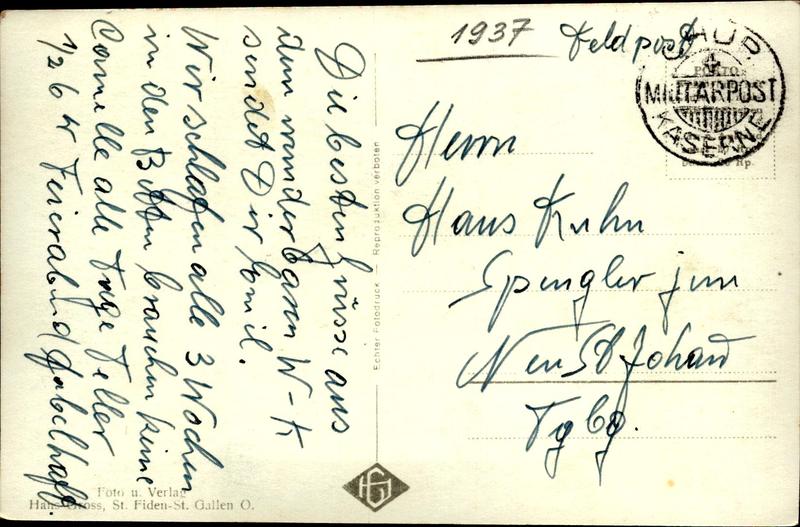 1937 Feldpost
CHUR
MILITÄRPOST
KASERNE
PORTO
Rp.
Die besten Grüsse aus
dem wunderbaren W-K
sendet Dir Emil.
Wir schlafen alle 3 Wochen
in den Betten brauchen keine
Camelle alle Tage Teller
1/2 6 Ur Feierabend fabelhaft.
Herrn
Hans Kuhn
Spengler jun
Neu St Johann
Tgbg.
Echter Fotodruck — Reproduktion verboten
HG
Foto u. Verlag
Hans Gross, St. Fiden-St. Gallen O.